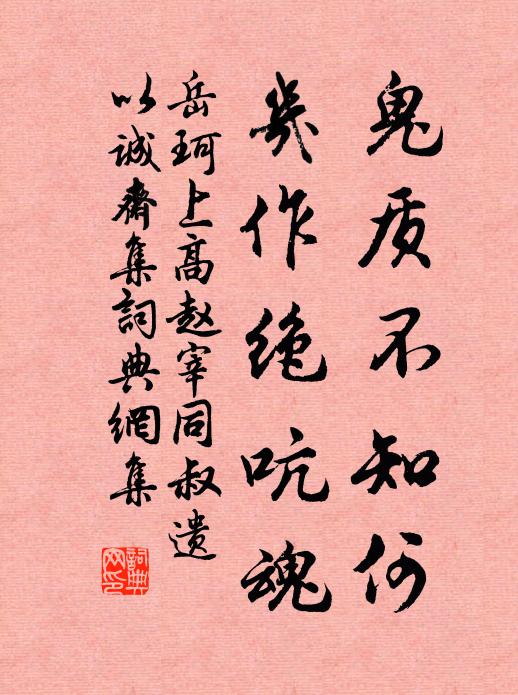 鬼质不知何
几作绝吭魂
岳珂上高赵宰同叔遗
以诚斋集詞典網集
詞典网印